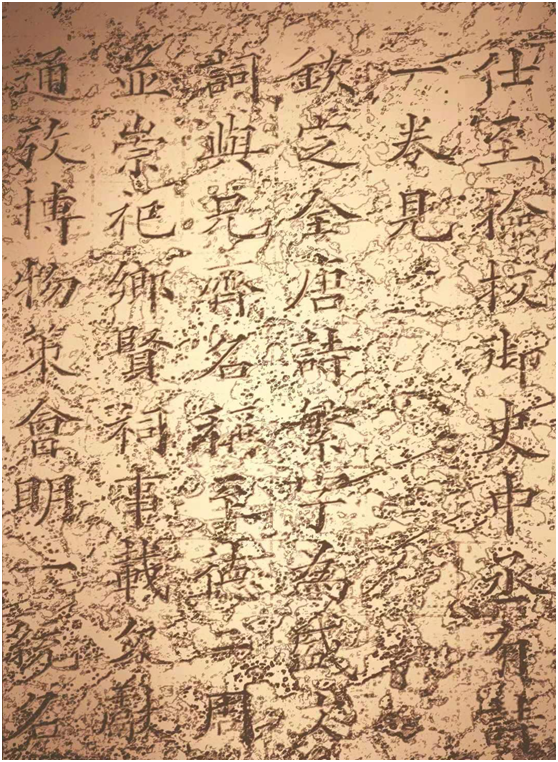 仕至檢校御史中丞有詩
一卷見
欽定全唐詩繁字為盛文
詞與兄齊名稱至德二周
並崇祀鄉賢祠事載文獻
通攷博物策會明一統名